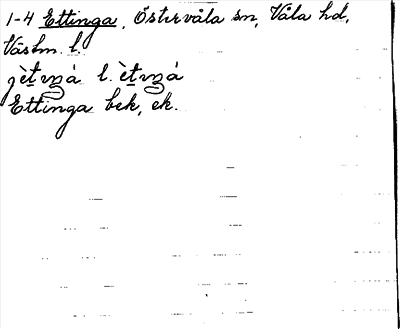 1-4 Ettinga, Östervåla sn, Våla hd,
Västm. l.
jètıŋá l. ètıŋá
Ettinga bek, ek.